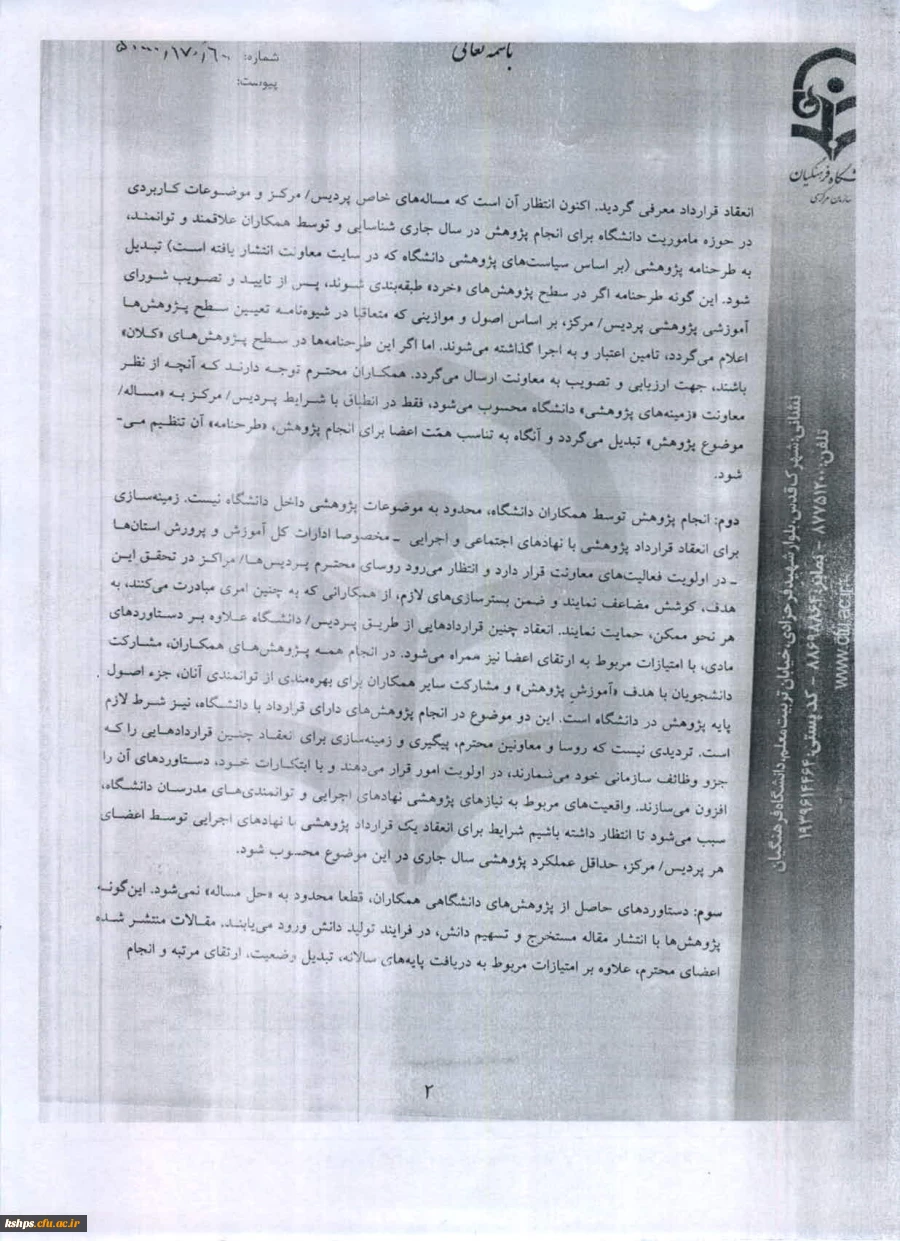 باسمه تعالی
شماره:
پیوست:
دانشگاه فرهنگیان
سازمان مرکزی
انعقاد قرارداد معرفی گردید. اکنون انتظار آن است که مساله‌های خاص پردیس/ مرکز و موضوعات کاربردی
در حوزه ماموریت دانشگاه برای انجام پژوهش در سال جاری شناسایی و توسط همکاران علاقمند و توانمند،
به طرحنامه پژوهشی (بر اساس سیاست‌های پژوهشی دانشگاه که در سایت معاونت انتشار یافته است) تبدیل
شود. این گونه طرحنامه اگر در سطح پژوهش‌های «خرد» طبقه‌بندی شوند، پس از تایید و تصویب شورای
آموزشی پژوهشی پردیس/ مرکز، بر اساس اصول و موازینی که متعاقبا در شیوه‌نامه تعیین سطح پژوهش‌ها
اعلام می‌گردد، تامین اعتبار و به اجرا گذاشته می‌شوند. اما اگر این طرحنامه‌ها در سطح پژوهش‌های «کلان»
باشند، جهت ارزیابی و تصویب به معاونت ارسال می‌گردد. همکاران محترم توجه دارند که آنچه از نظر
معاونت «زمینه‌های پژوهشی» دانشگاه محسوب می‌شود، فقط در انطباق با شرایط پردیس/ مرکز به «مساله/
موضوع پژوهش» تبدیل می‌گردد و آنگاه به تناسب همّت اعضا برای انجام پژوهش، «طرحنامه» آن تنظیم می-
شود.
دوم: انجام پژوهش توسط همکاران دانشگاه، محدود به موضوعات پژوهشی داخل دانشگاه نیست. زمینه‌سازی
برای انعقاد قرارداد پژوهشی با نهادهای اجتماعی و اجرایی - مخصوصا ادارات کل آموزش و پرورش استان‌ها
- در اولویت فعالیت‌های معاونت قرار دارد و انتظار می‌رود روسای محترم پردیس‌ها/ مراکز در تحقق این
هدف، کوشش مضاعف نمایند و ضمن بسترسازی‌های لازم، از همکارانی که به چنین امری مبادرت می‌کنند، به
هر نحو ممکن، حمایت نمایند. انعقاد چنین قراردادهایی از طریق پردیس/ دانشگاه علاوه بر دستاوردهای
مادی، با امتیازات مربوط به ارتقای اعضا نیز همراه می‌شود. در انجام همه پژوهش‌های همکاران، مشارکت
دانشجویان با هدف «آموزش پژوهش» و مشارکت سایر همکاران برای بهره‌مندی از توانمندی آنان، جزء اصول
پایه پژوهش در دانشگاه است. این دو موضوع در انجام پژوهش‌های دارای قرارداد با دانشگاه، نیز شرط لازم
است. تردیدی نیست که روسا و معاونین محترم، پیگیری و زمینه‌سازی برای انعقاد چنین قراردادهایی را که
جزو وظائف سازمانی خود می‌شمارند، در اولویت امور قرار می‌دهند و با ابتکارات خود، دستاوردهای آن را
افزون می‌سازند. واقعیت‌های مربوط به نیازهای پژوهشی نهادهای اجرایی و توانمندی‌های مدرسان دانشگاه،
سبب می‌شود تا انتظار داشته باشیم شرایط برای انعقاد یک قرارداد پژوهشی با نهادهای اجرایی توسط اعضای
هر پردیس/ مرکز، حداقل عملکرد پژوهشی سال جاری در این موضوع محسوب شود.
سوم: دستاوردهای حاصل از پژوهش‌های دانشگاهی همکاران، قطعا محدود به «حل مساله» نمی‌شود. این‌گونه
پژوهش‌ها با انتشار مقاله مستخرج و تسهیم دانش، در فرایند تولید دانش ورود می‌یابند. مقالات منتشر شده
اعضای محترم، علاوه بر امتیازات مربوط به دریافت پایه‌های سالانه، تبدیل وضعیت، ارتقای مرتبه و انجام
۲
نشانی: شهرک قدس، بلوار شهید فرحزادی، خیابان تربیت معلم، دانشگاه فرهنگیان
تلفن: ۸۷۷۵۱۲۰۰ - نمابر: ۸۸۶۹۸۸۶۴ - کد پستی: ۱۹۳۹۶۱۴۴۶۴
www.cfu.ac.ir
kshps.cfu.ac.ir